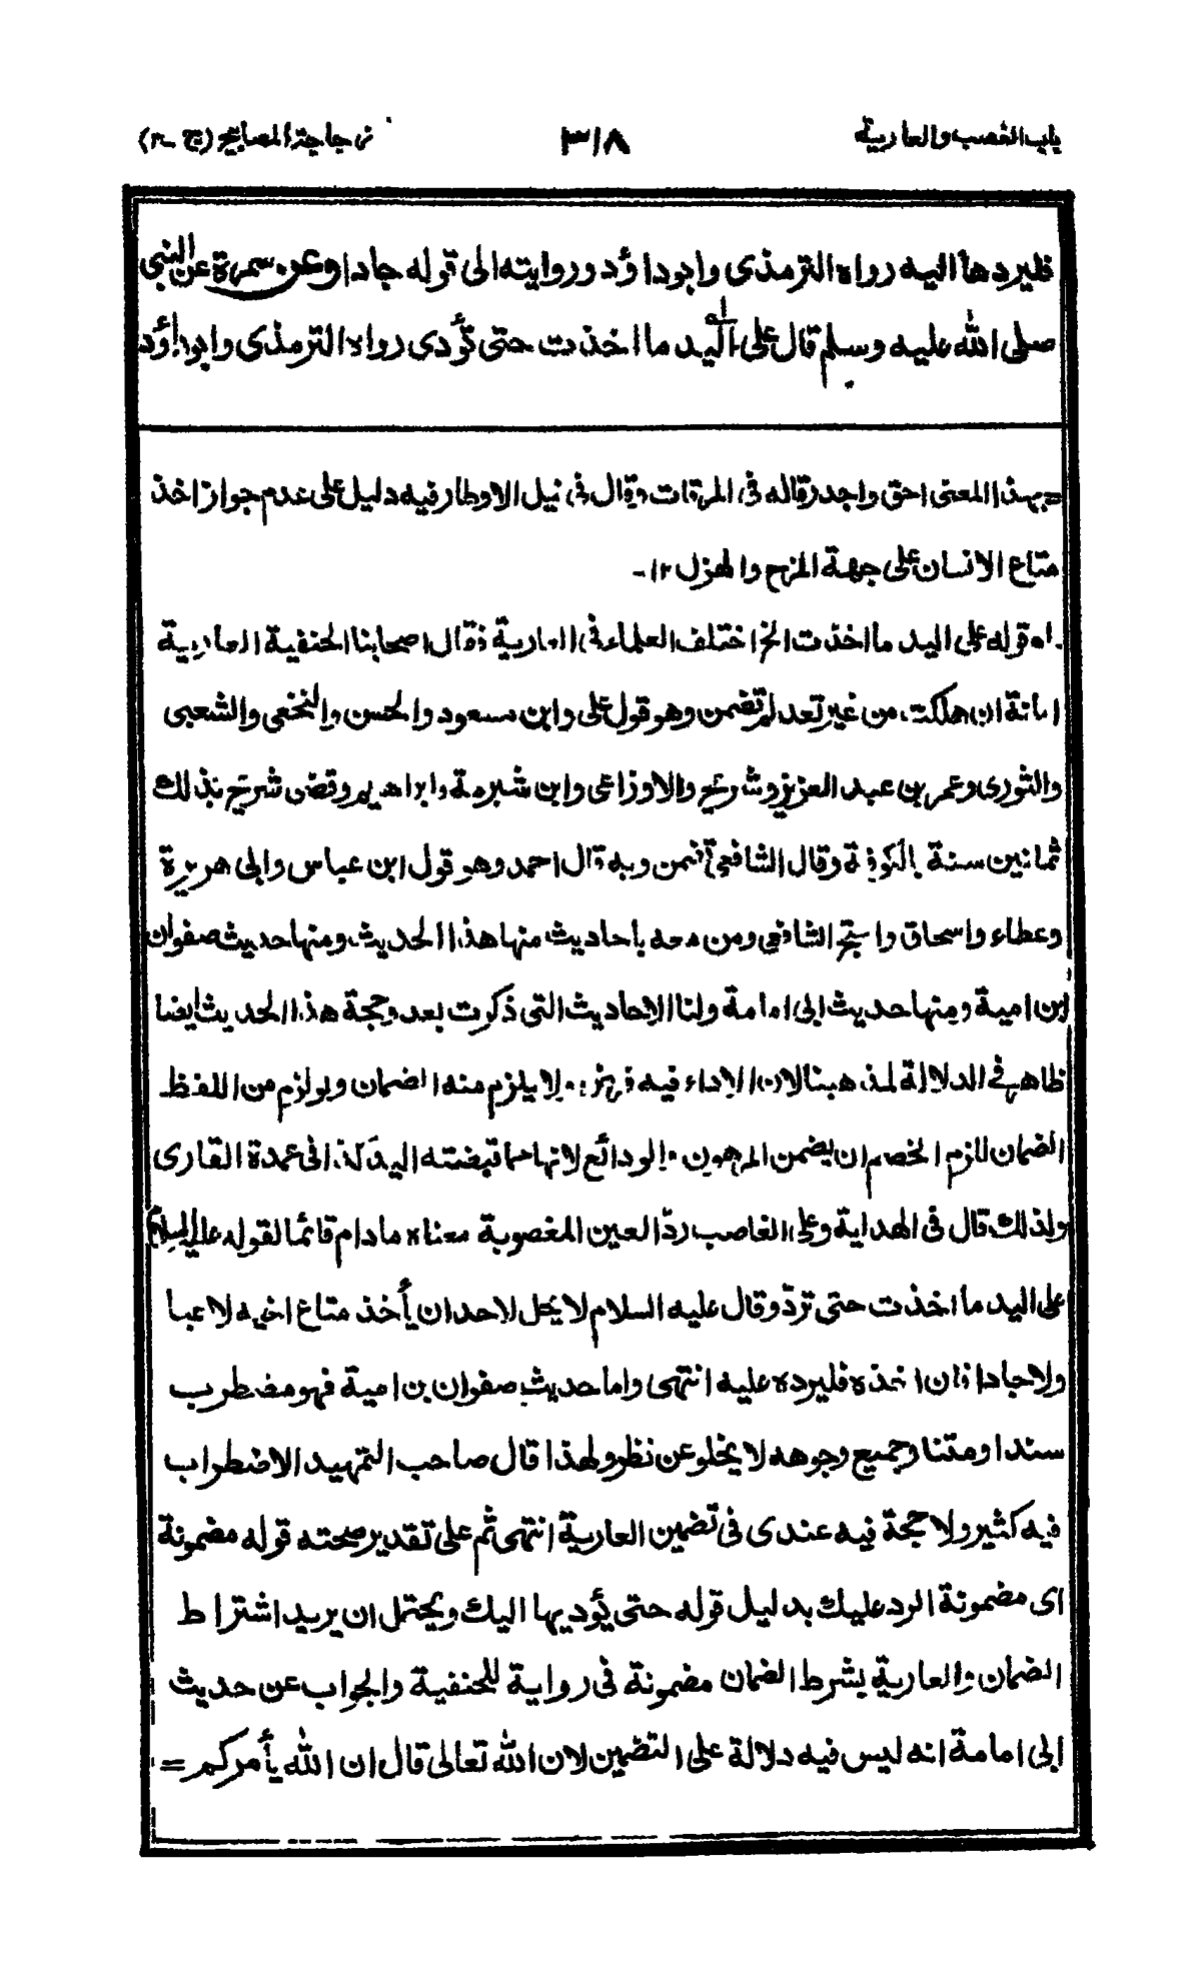 باب الغصب والعارية ٣١٨ زجاجة المصابيح (ج-٢)
فليردها اليه رواه الترمذى وابوداؤد وروايته الى قوله جادا وعن سمرة عن النبى
صلى الله عليه وسلم قال على اليد ما اخذت حتى تؤدى رواه الترمذى وابوداؤد
=بهذا المعنى احق واجدر قاله فى المرقات وقال فى نيل الاوطار فيه دليل على عدم جواز اخذ
متاع الانسان على جهة المزح والهزل ١٢-
له قوله على اليد ما اخذت الخ اختلف العلماء فى العارية فقال اصحابنا الحنفية العارية
امانة ان هلكت من غير تعد لم تضمن وهو قول على وابن مسعود والحسن والنخعى والشعبى
والثورى وعمر بن عبد العزيز وشريح والاوزاعى وابن شبرمة وابراهيم وقضى شريح بذلك
ثمانين سنة بالكوفة وقال الشافعى تضمن وبه قال احمد وهو قول ابن عباس وابى هريرة
وعطاء واسحاق واحتج الشافعى ومن معه باحاديث منها هذا الحديث ومنها حديث صفوان
ابن امية ومنها حديث ابى امامة ولنا الاحاديث التى ذكرت بعد وحجة هذا الحديث ايضا
ظاهر فى الدلالة لمذهبنا لان الاداء فيه فرض ولا يلزم منه الضمان ولو لزم من اللفظ
الضمان للزم الخصم ان يضمن المرهون والودائع لانها مما قبضته اليد كذا فى عمدة القارى
ولذلك قال فى الهداية وعلى الغاصب ردّ العين المغصوبة معناه مادام قائما لقوله عليه السلام
على اليد ما اخذت حتى تردّ وقال عليه السلام لا يحل لاحد ان يأخذ متاع اخيه لاعبا
ولا جادا فان اخذه فليرده عليه انتهى واما حديث صفوان بن امية فهو مضطرب
سندا ومتنا وجميع وجوهه لا يخلو عن نظر ولهذا قال صاحب التمهيد الاضطراب
فيه كثير ولا حجة فيه عندى فى تضمين العارية انتهى ثم على تقدير صحته قوله مضمونة
اى مضمونة الرد عليك بدليل قوله حتى يؤديها اليك ويحتمل ان يريد اشتراط
الضمان والعارية بشرط الضمان مضمونة فى رواية للحنفية والجواب عن حديث
ابى امامة انه ليس فيه دلالة على التضمين لان الله تعالى قال ان الله يأمركم=